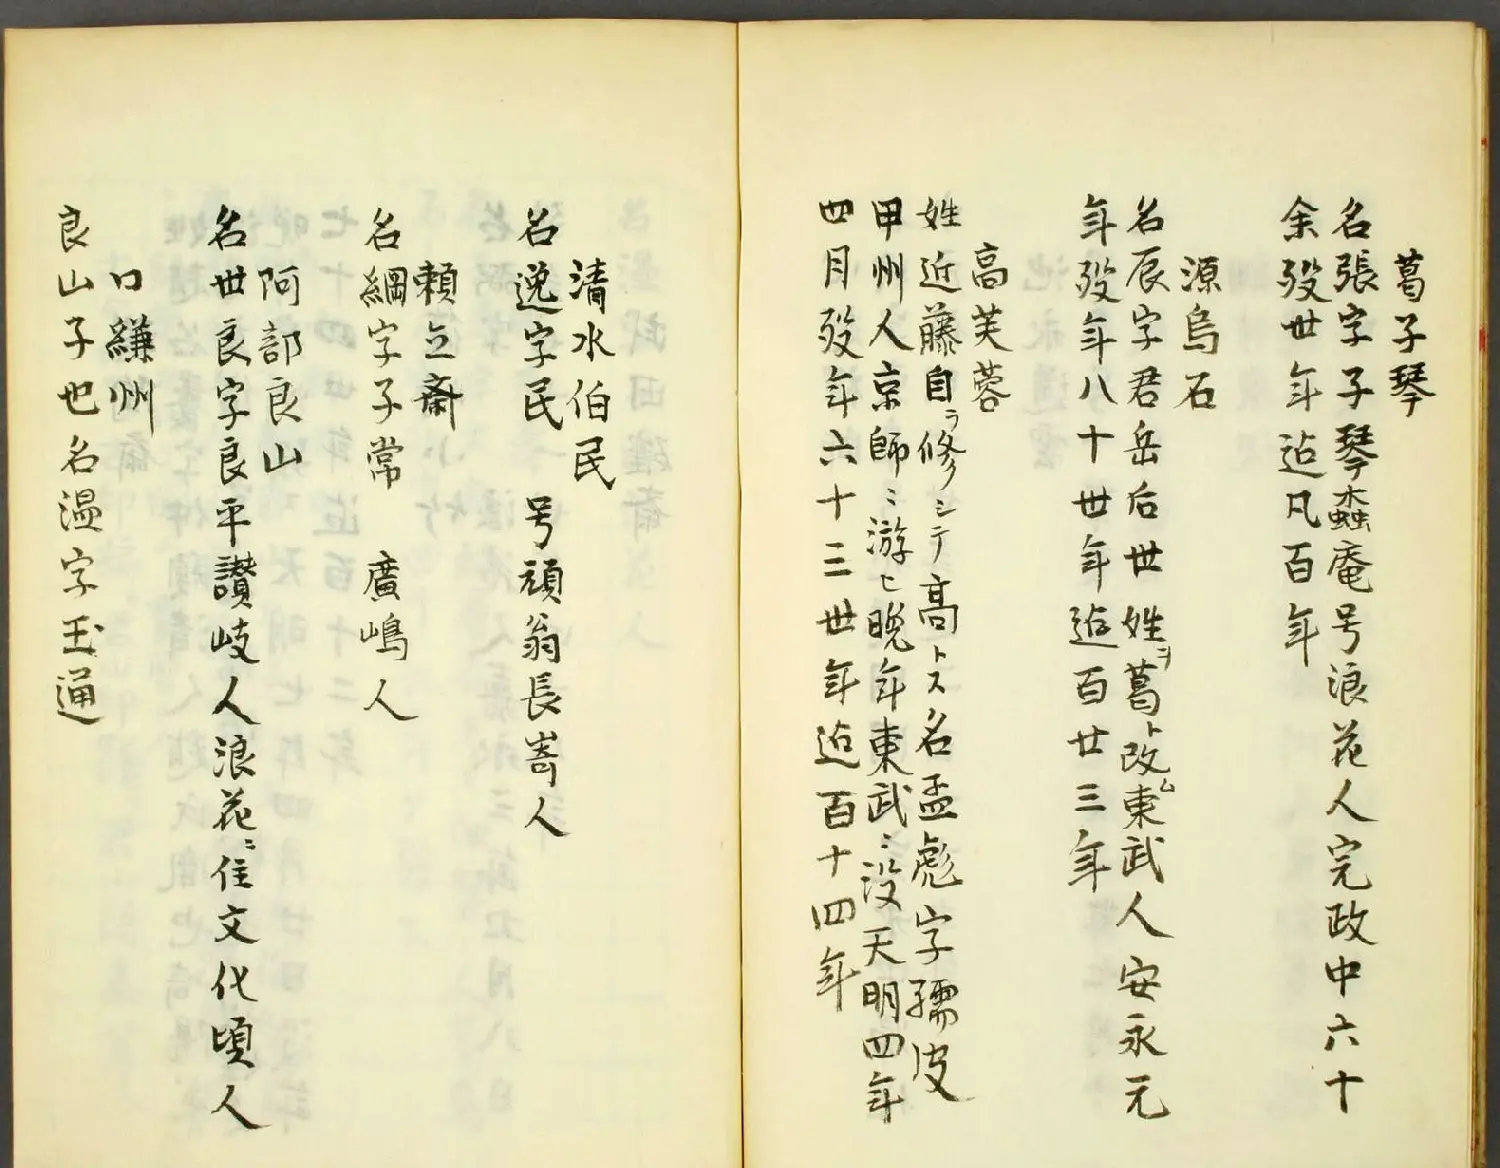 葛子琴
名張字子琴蠧庵号浪花人完政中六十
余歿世年迨凡百年
源烏石
名辰字君岳后世姓ヲ葛ト改ム東武人安永元
年歿年八十世年迨百廿三年
高芙蓉
姓近藤自ラ修シテ高トス名孟彪字孺皮
甲州人京師ニ游ヒ晩年東武ニ没天明四年
四月歿年六十三世年迨百十四年
清水伯民
名逸字民 号頑翁長嵜人
頼立斎
名綱字子常 廣嶋人
阿部良山
名世良字良平讃岐人浪花ニ住文化頃人
口縑州
良山子也名温字玉通